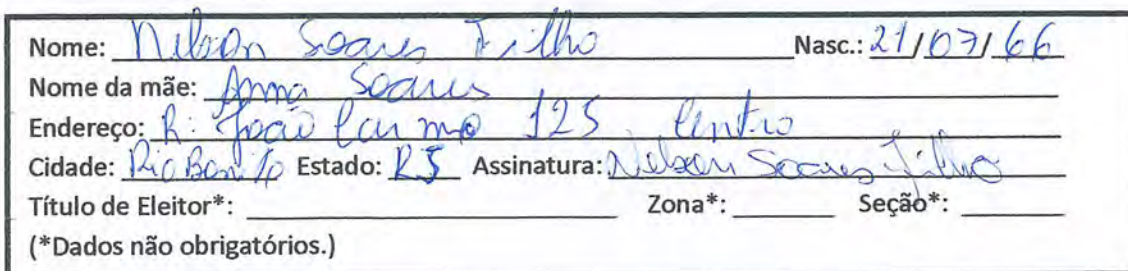 Nome: Nelson Soares Filho Nasc.: 21/07/66
Nome da mãe: Anna Soares
Endereço: R: João Carmo 125, Centro
Cidade: Rio Bonito Estado: RJ Assinatura: Nelson Soares Filho
Título de Eleitor*: Zona*: Seção*:
(*Dados não obrigatórios.)